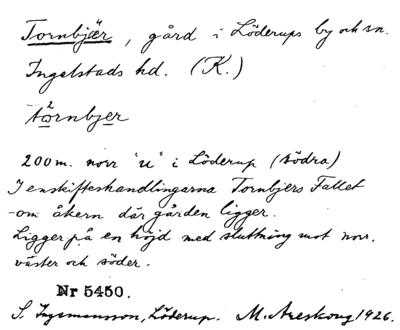 Tornbjär, gård i Löderups by och sn.
Ingelstads hd. (K.)
to²rnbjer
200 m. norr "u" i Löderup (södra)
I enskifteshandlingarna Tornbjers Fallet
-om åkern där gården ligger.
Ligger på en höjd med sluttning mot norr,
väster och söder.
Nr 5450.
S. Ingemansson, Löderup. M. Areskoug 1926.